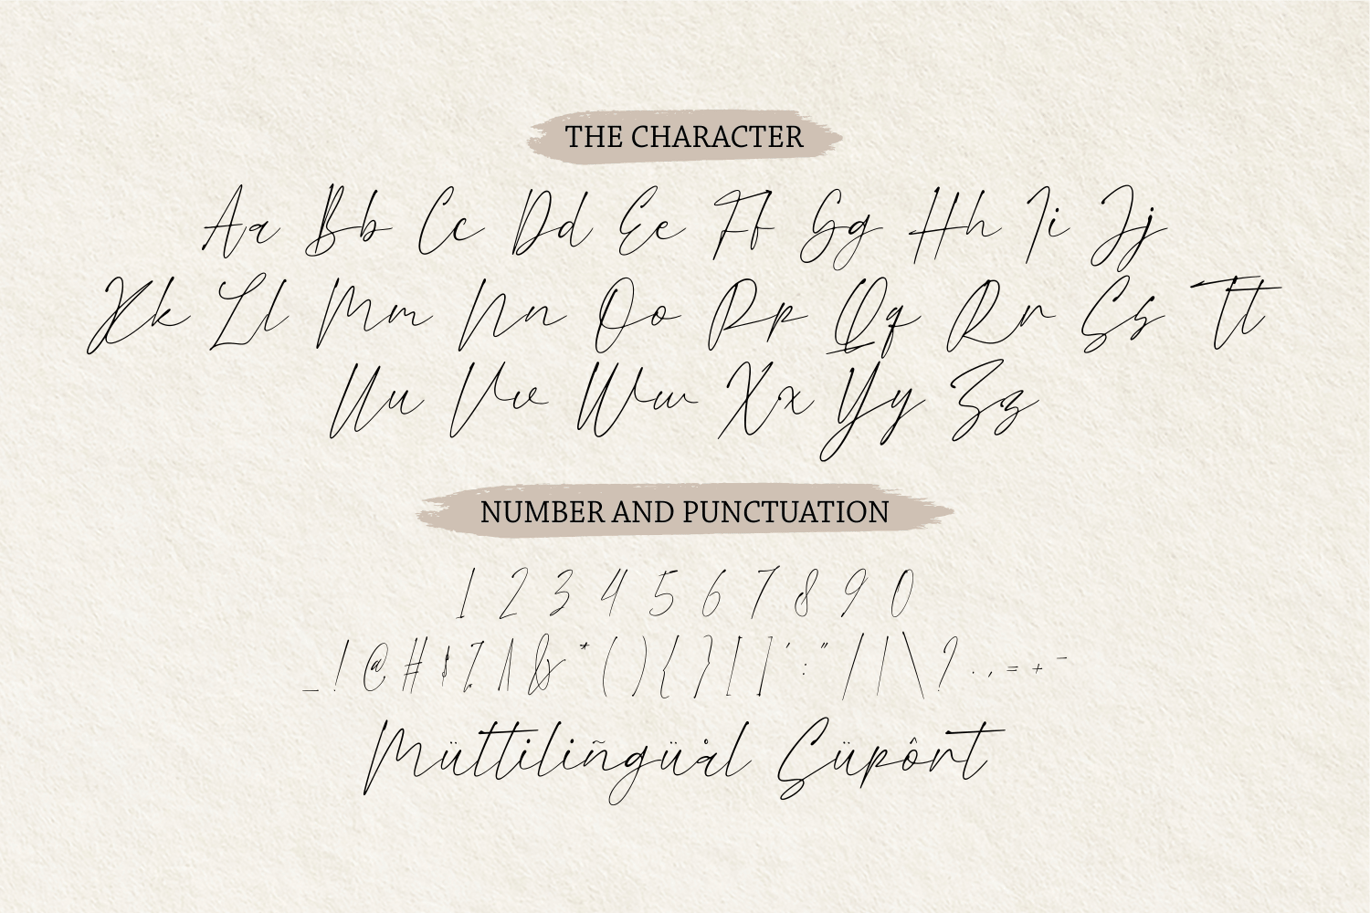 THE CHARACTER
Aa Bb Cc Dd Ee Ff Gg Hh Ii Jj
Kk Ll Mm Nn Oo Pp Qq Rr Ss Tt
Uu Vv Ww Xx Yy Zz
NUMBER AND PUNCTUATION
1 2 3 4 5 6 7 8 9 0
_ ! @ # $ % ^ & * ( ) { } [ ] ' : " / | \ ? . , = + -
Müttilingüål Süpôrt